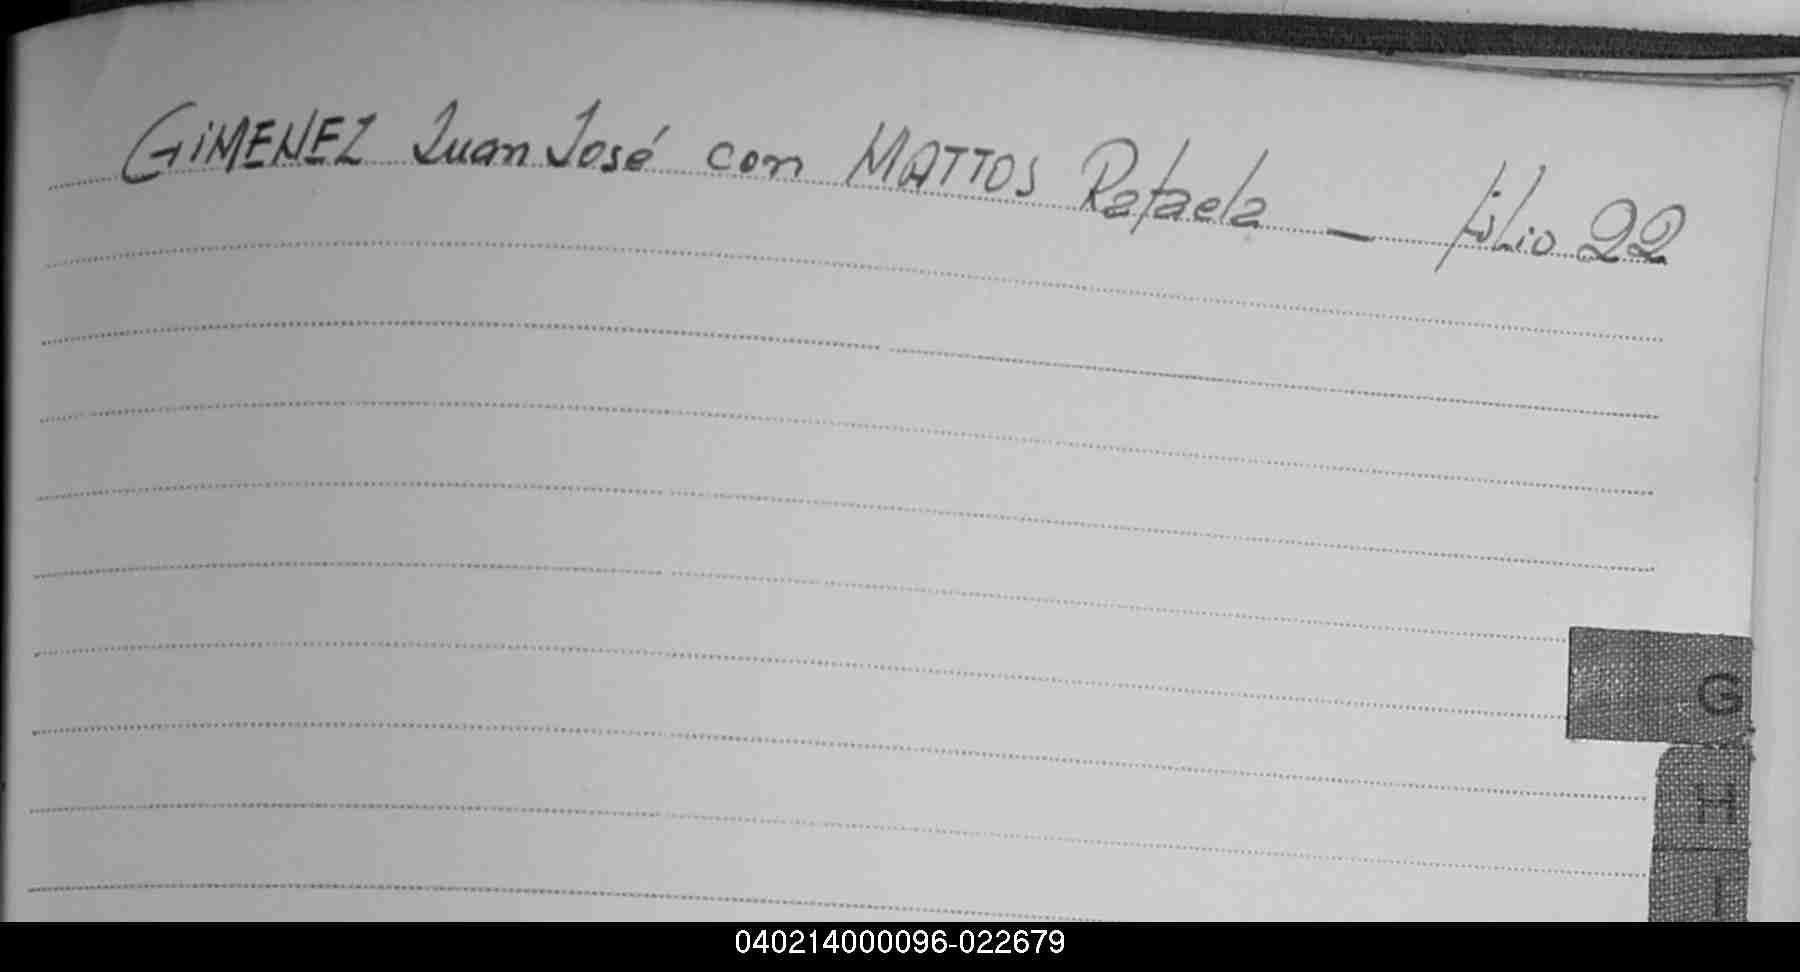 GIMENEZ Juan José con MATTOS Rafaela — fólio 22
G
H
I
040214000096-022679